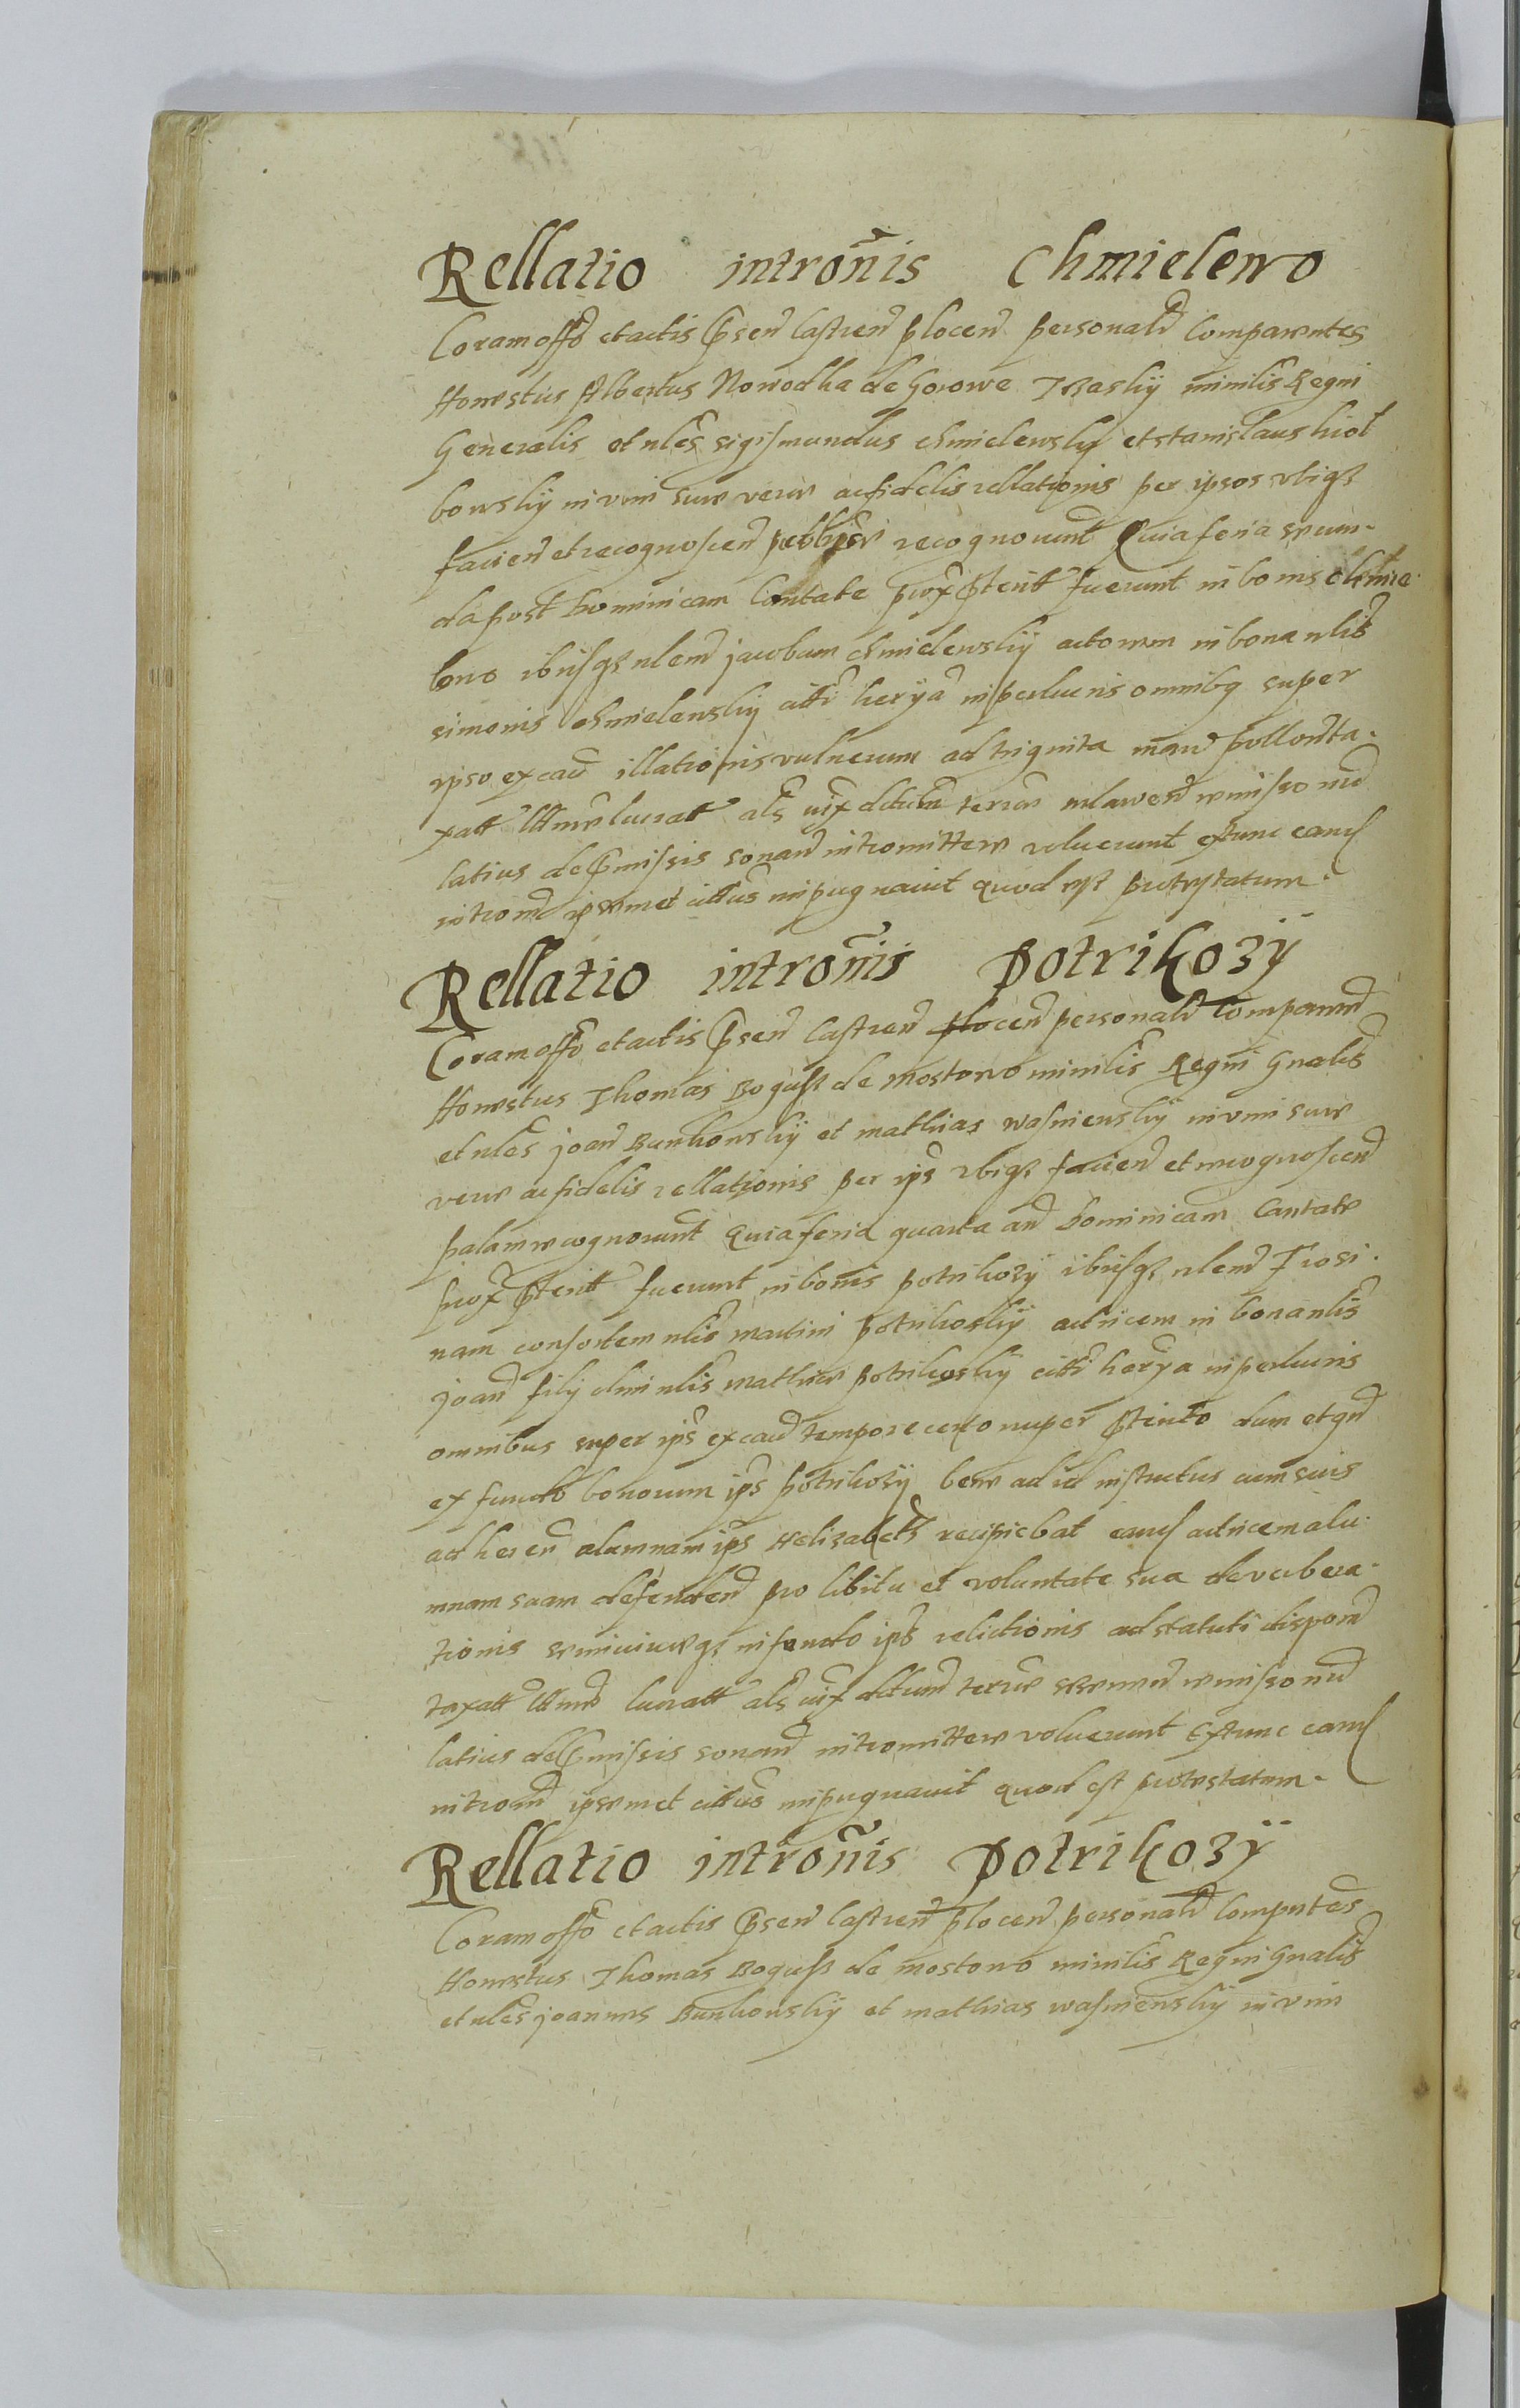 Rellatio intronis Chmielewo
Coram offo et actis psen Castren plocen personalr Comparentes
Honestus Albertus Nowodka de Gorowe minilis Regni
Generalis et nles sigismundus chmielewsky et stanislaus
bowskÿ in vim sue vere ac fidelis rellationis per ipsos vbiqz
facien et recognoscen recognouerunt Quia feria secun-
da post dominicam Cantate prox pterit fuerunt in bonis chmie-
lewo ibiqz nlem jacobum chmielewskÿ actorem in bona nlis
simonis chmielewskÿ citti herÿa inpeducris omnibq super
ipso ex cau illationis vulnerum ad triginta marc
xatt lucratt als vix terrae mlawen remisso nd
latius de pmissis sonan intromittere voluerunt extunc eand
introm ipsemet cittus inpugnauit quod est protestatum.
Rellatio intronis Potrikozÿ
Coram offo et actis psen Castren plocen personalr Comparend
Honestus Thomas Boguss de mostowo minilis Regni Gnalis
et nles joan Bunkowskÿ et mathias wasniewskÿ in vim sue
vere ac fidelis rellationis per ips vbiqz facien et recognoscen
palam recognorunt Quia feria quarta an Dominicam Cantate
prox pterit fuerunt in bonis potrikozÿ ibiqz nlem Frosi-
nam consortem nlis martini potrikoskÿ actricem in bona nlis
joan filÿ olim nlis mathiae potrikoskÿ citti herÿa inpeducris
omnibus super ips ex cau tempore certo nuper pterito dum et qn
ex fundo bonorum ips potrikozÿ bene ad id instructus cum suis
ad heren alumnam ips Helizabeth recipiebat eand actricem alu-
mnam suam defenden pro libitu et voluntate sua deverbera-
tionis semiviueqz in fundo ips relictionis ad statuti disposin
taxatt lucratt als vix terrae remisso nd
latius de pmissis sonan intromittere voluerunt Extunc eand
introm ipsemet cittus inpugnauit quod est protestatum.
Rellatio intronis Potrikozÿ
Coram offo et actis psen Castren plocen personalr Computes
Honestus Thomas Boguss de mostowo minilis Regni Gnalis
et nles joannes Bunkowskÿ et mathias wasniewskÿ in vim